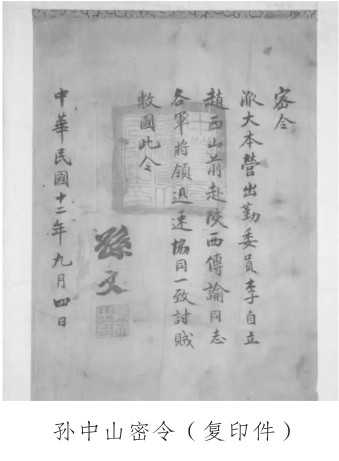 密令
派大本營出勤委員李自立
趙西山前赴陝西傳諭同志
各軍將領迅速協同一致討賊
救國此令
孫文
中華民國十二年九月四日
孙中山密令（复印件）